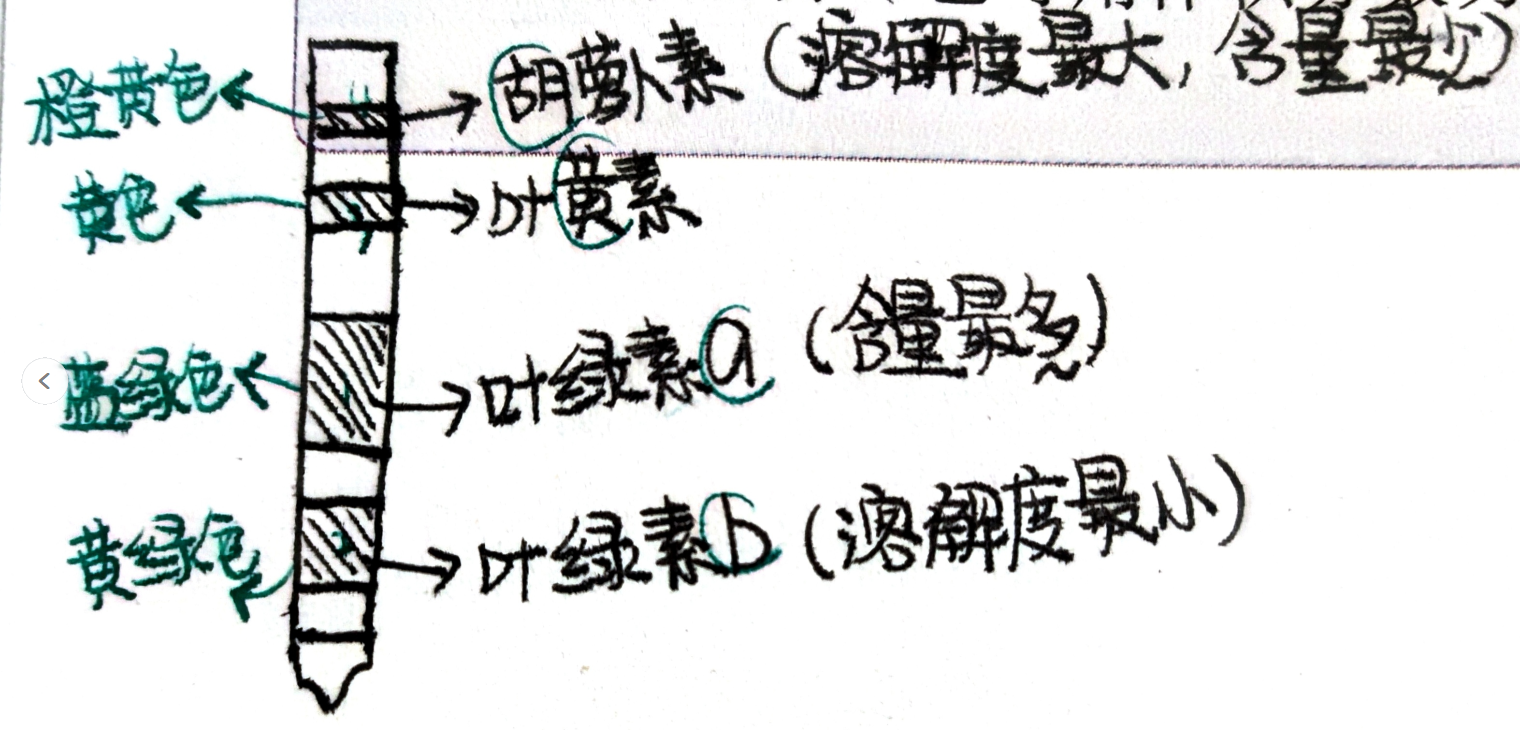 橙黄色 胡萝卜素（溶解度最大，含量最少）
黄色 叶黄素
蓝绿色 叶绿素a（含量最多）
黄绿色 叶绿素b（溶解度最小）